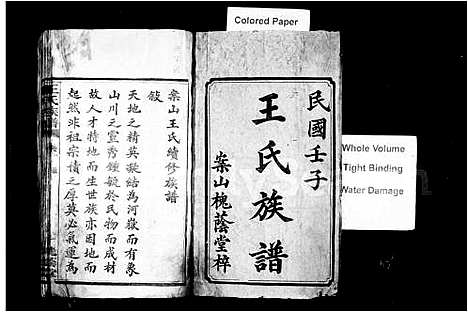 Colored Paper
Whole Volume
Tight Binding
Water Damage
民國壬子
王氏族譜
案山槐蔭堂梓
案山王氏續修族譜
敘
天地之精英凝結為河嶽而有象
山川之靈秀鍾毓於民物而成材
故人才特地而生世族亦因地而
起然非祖宗積之厚莫必氣運為